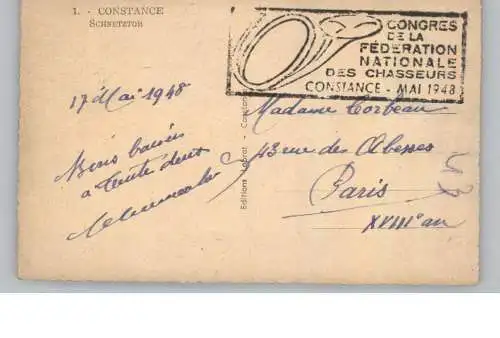 1. - CONSTANCE
SCHNETZTOR
CONGRES
DE LA
FÉDERATION
NATIONALE
DES CHASSEURS
CONSTANCE - MAI 1948
17 Mai 1948
Bons baisers
a toute deux
Editions - Constance
Madame Corbeau
43 rue des Abesses
Paris
XVIIIe arr